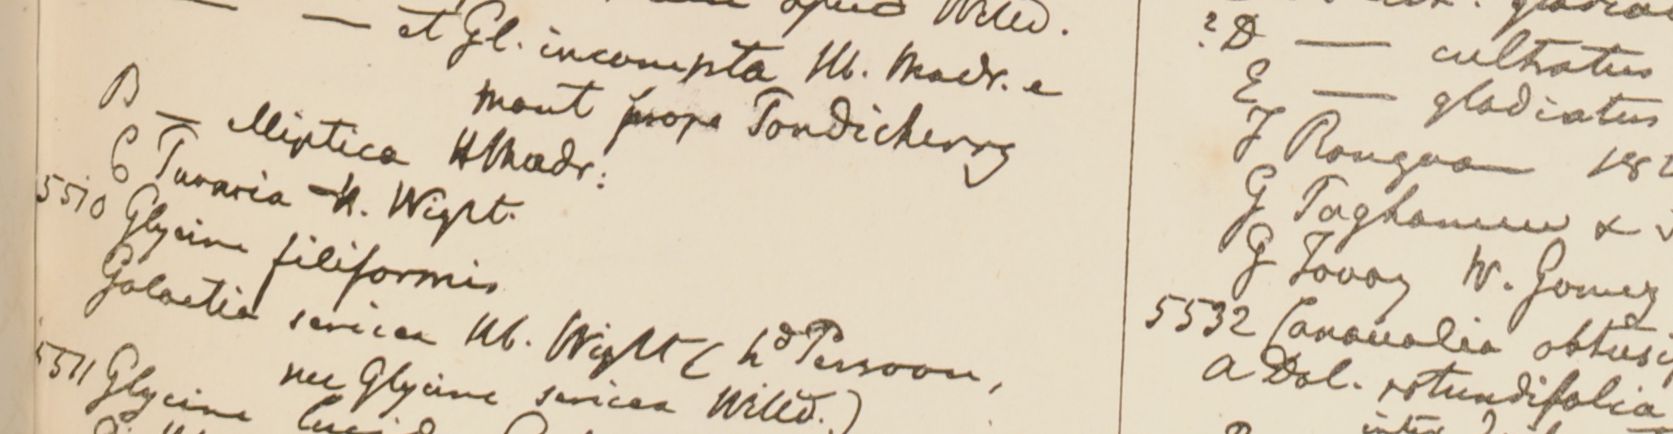 apud Willd.
— et Gl. incompta Hb. Madr. e
mont prope Pondicherry
B — elliptica HMadr:
C Tavaria H. Wight.
5510 Glycine filiformis
Galactia sericea Hb. Wight ( hd Persoon,
nec Glycine sericea Willd.)
5511 Glycine
?D — cultratus
E — gladiatus
F Rangoon 182
G Taghamew &
G Tavoy W. Gomez
5532 Canavalia obtusi
a Dol. rotundifolia